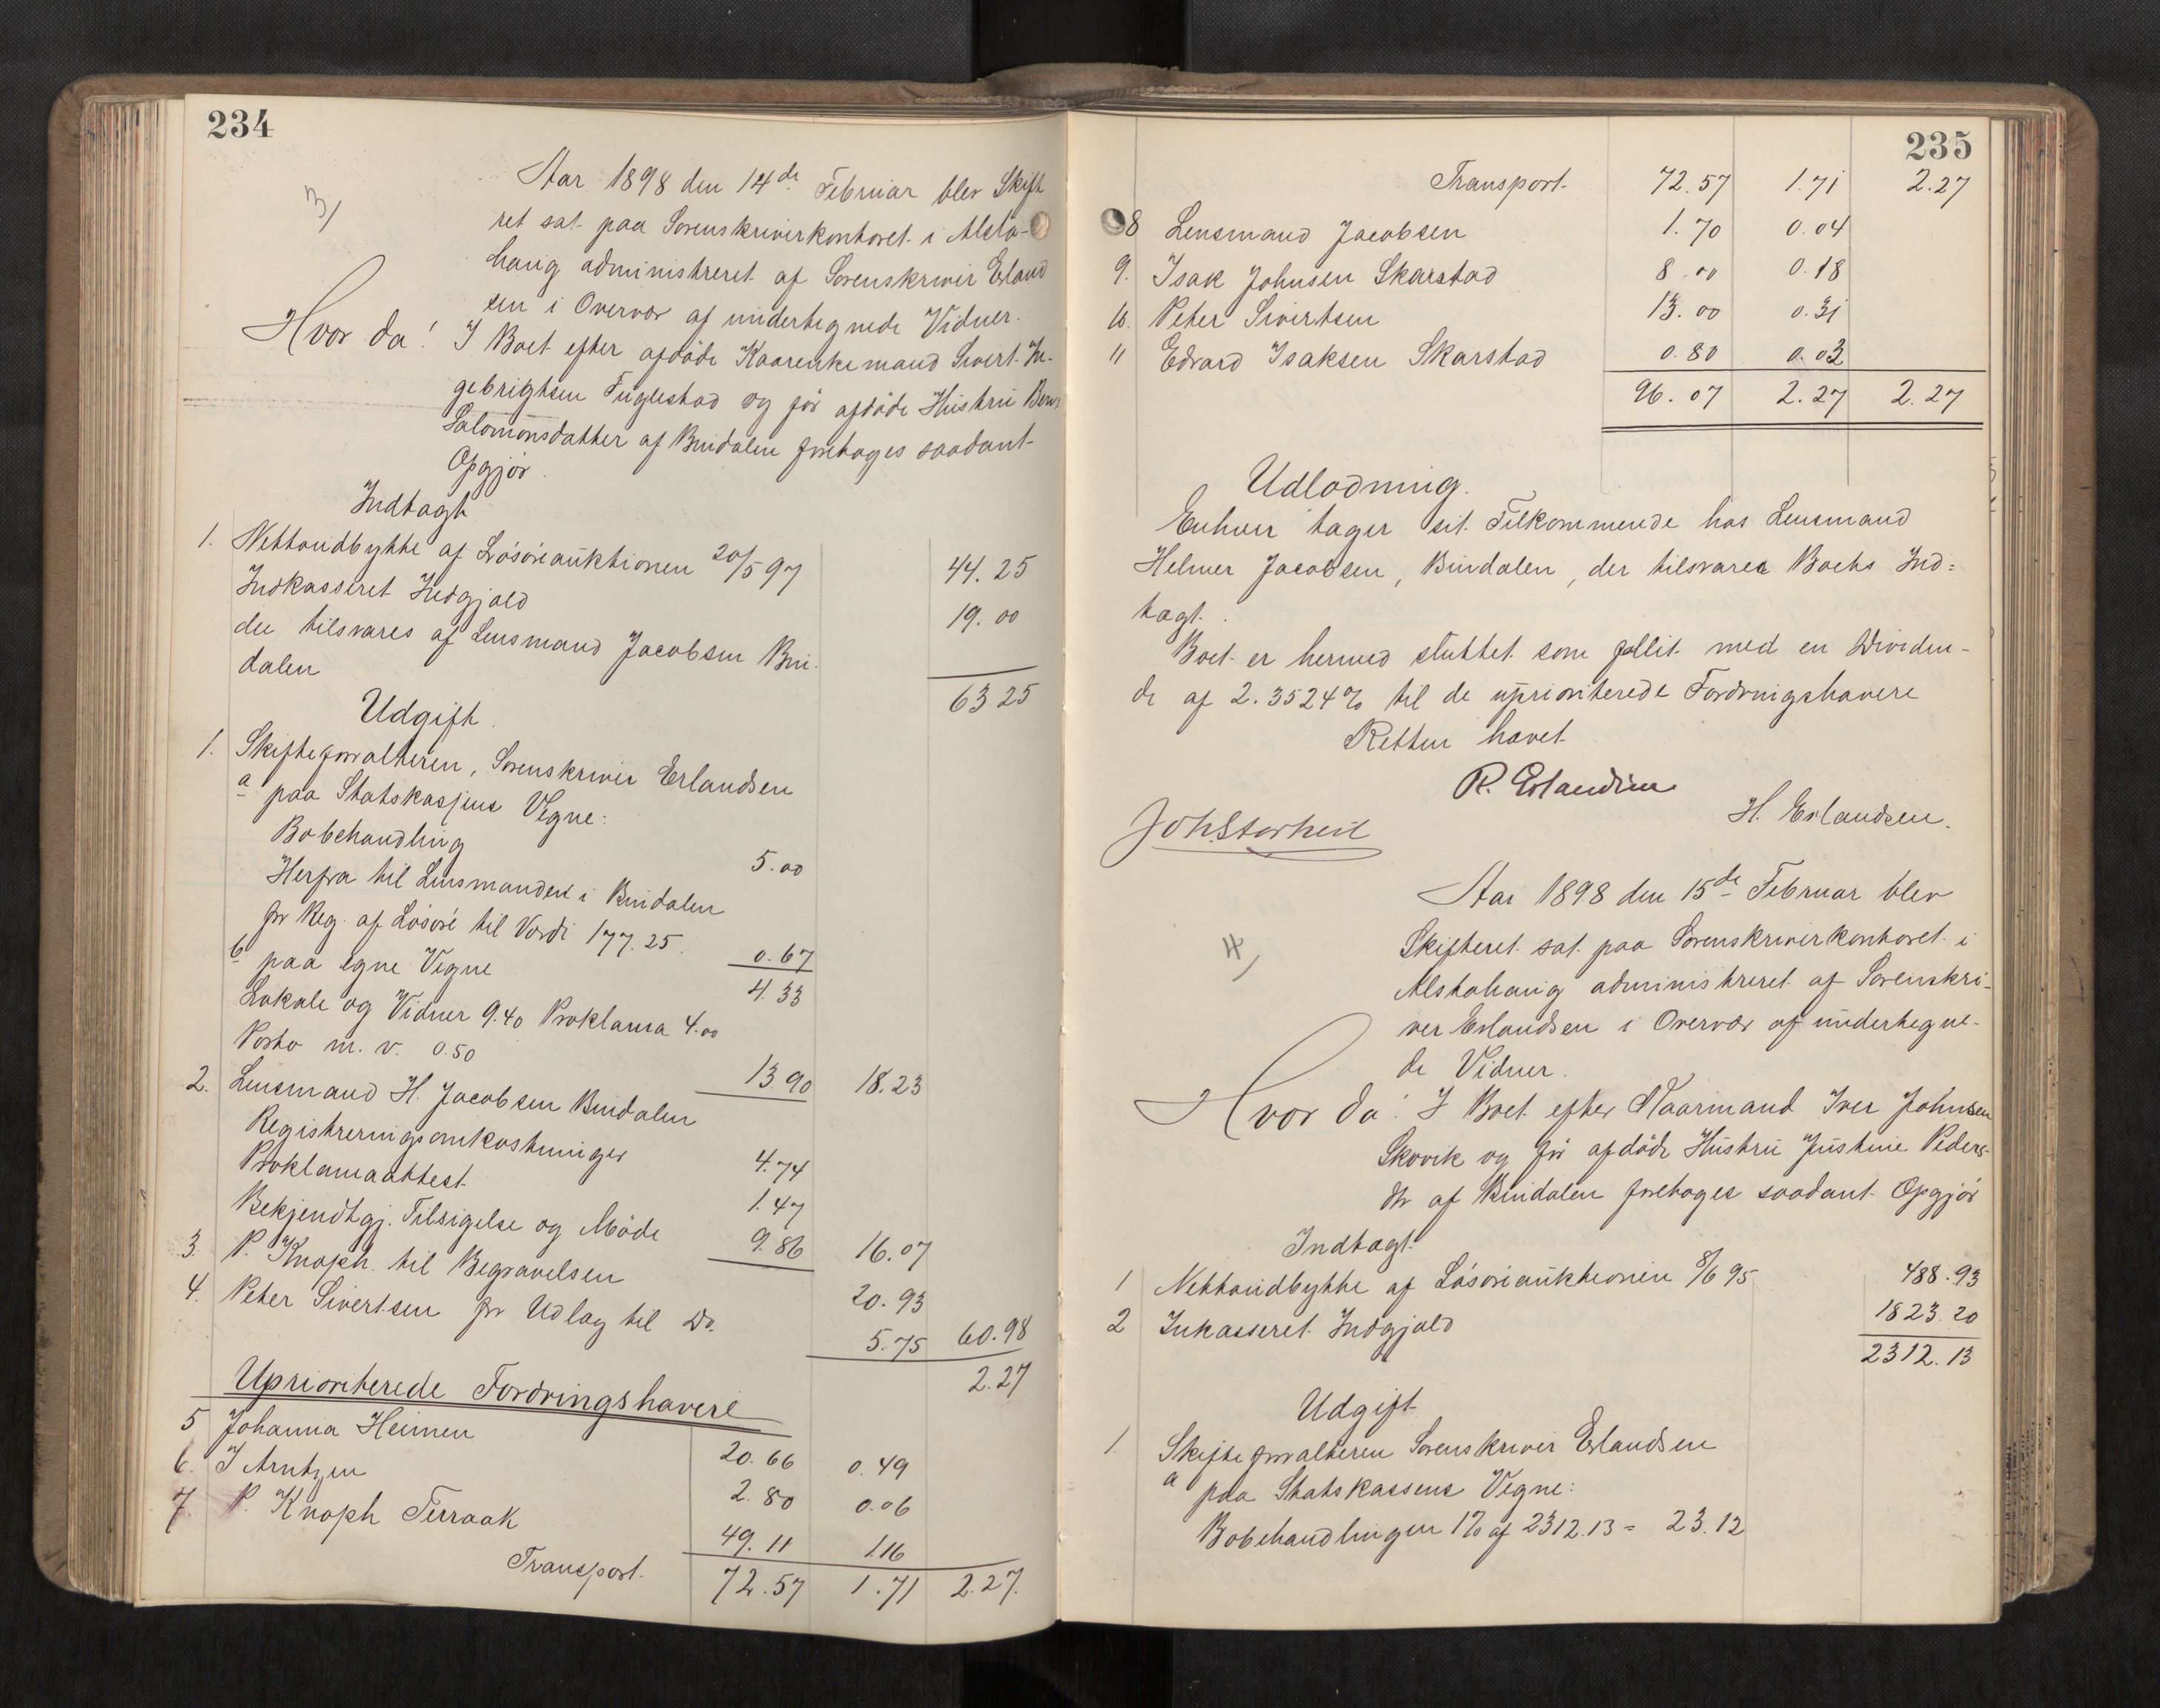 234
3)
Aar 1898 den 14de Februar blev Skift
ret sat paa Sorenskriverkontoret i Alsta-
haug administreret af Sorenskriver Erland
sen i Overvær af undertegnede Vidner.
Hvor da! I Boet efter afdöde Kaarenkemand Sivert In-
gebrigtsen Fuglestad og før afdöde Hustru
Salomonsdatter af Bindalen foretoges saadant
Opgjør.
Indtægt
1. Nettoudbytte af Lösöreauktionen 20/5 97 44.25
Indkasseret Indgjæld 19.00
der tilsvares af Lensmand Jacobsen Bin-
dalen
63 25
Udgift.
1. Skifteforvalteren, Sorenskriver Erlandsen
a paa Statskassens Vegne:
Bobehandling 5.00
Herfra til Lensmanden i Bindalen
for Reg. af Lösöre til Værdi 177.25. 0.67
4.33
b paa egne Vegne
Lokale og Vidner 9.40 Proklama 4.00
Porto m. v. 0.50 13 90 18.23
2. Lensmand H. Jacobsen Bindalen
Registreringsomkostninger 4.74
Proklamaattest 1.47
Bekjendtgj. Tilsigelse og Möde 9.86 16.07
3. P. Knoph til Begravelsen 20.93
4. Peter Sivertsen for Udlæg til Do. 5.75 60.98
2.27
Uprioriterede Fordringshavere
5 Johanna Heimen 20.66 0.49
6. I Arntzen 2.80 0.06
7. P. Knoph Terraak 49.11 1.16
Transport. 72.57 1.71 2.27.
235
Transport. 72.57 1.71 2.27
8 Lensmand Jacobsen 1.70 0.04
9. Isak Johnsen Skarstad 8.00 0.18
10. Peter Sivertsen 13.00 0.31
11 Edvard Isaksen Skarstad 0.80 0.03
96.07 2.27 2.27
Udlodning.
Enhver tager sit Tilkommende hos Lensmand
Helmer Jacobsen, Bindalen, der tilsvarer Boets Ind=
tægt.
Boet er hermed sluttet som fallit med en Dividen-
de af 2.3524% til de uprioriterede Fordringshavere
Retten hævet
R. Erlandsen
H. Erlandsen.
Joh Storheil
4)
Aar 1898 den 15de Februar blev
Skifteret sat paa Sorenskriverkontoret i
Alstahaug administreret af Sorenskri-
ver Erlandsen i Overvær af undertegne-
de Vidner.
Hvor da! I Boet efter Iver Johnsen
Skovik og før afdöde Hustru Justine Peders-
dtr af Bindalen foretoges saadant Opgjör
Indtægt.
1 Nettoudbytte af Lösöreauktionen 8/6 95 488.93
2 Inkasseret Indgjæld 1823.20
2312.13
Udgift
1. Skifteforvalteren Sorenskriver Erlandsen
a paa Statskassens Vegne:
Bobehandlingen 1% af 2312.13 = 23.12